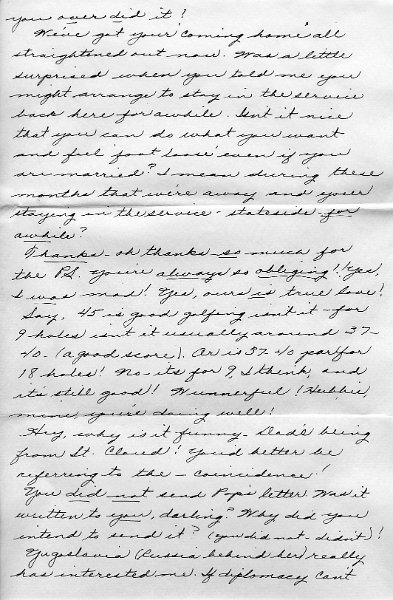 you over did it!
We've got your 'coming home' all
straightened out now. Was a little
surprised when you told me you
might arrange to stay in the service
back here for awhile. Isn't it nice
that you can do what you want
and feel 'foot loose' even if you
are married? I mean during these
months that we're away and your
staying in the service - stateside - for
awhile?
Thanks - oh thanks - so much for
the P.S. You're always so obliging! Yes,
I was mad! Yes, ours is true love!
Say, 45 is good golfing isn't it - for
9 holes isn't it usually around 37-
40 - (a good score). Or is 37-40 par for
18 holes! No - it's for 9, I think, and
it's still good! Wunnerful! Hubbie,
mine, you're doing well!
Hey, why is it funny - Dad's being
from St. Cloud! You'd better be
referring to the - coincidence!
You did not send Pop's letter. Was it
written to you, darling? Why did you
intend to send it? (you did not didn't)!
Yugoslavia (Russia behind her) really
has interested me. If diplomacy can't